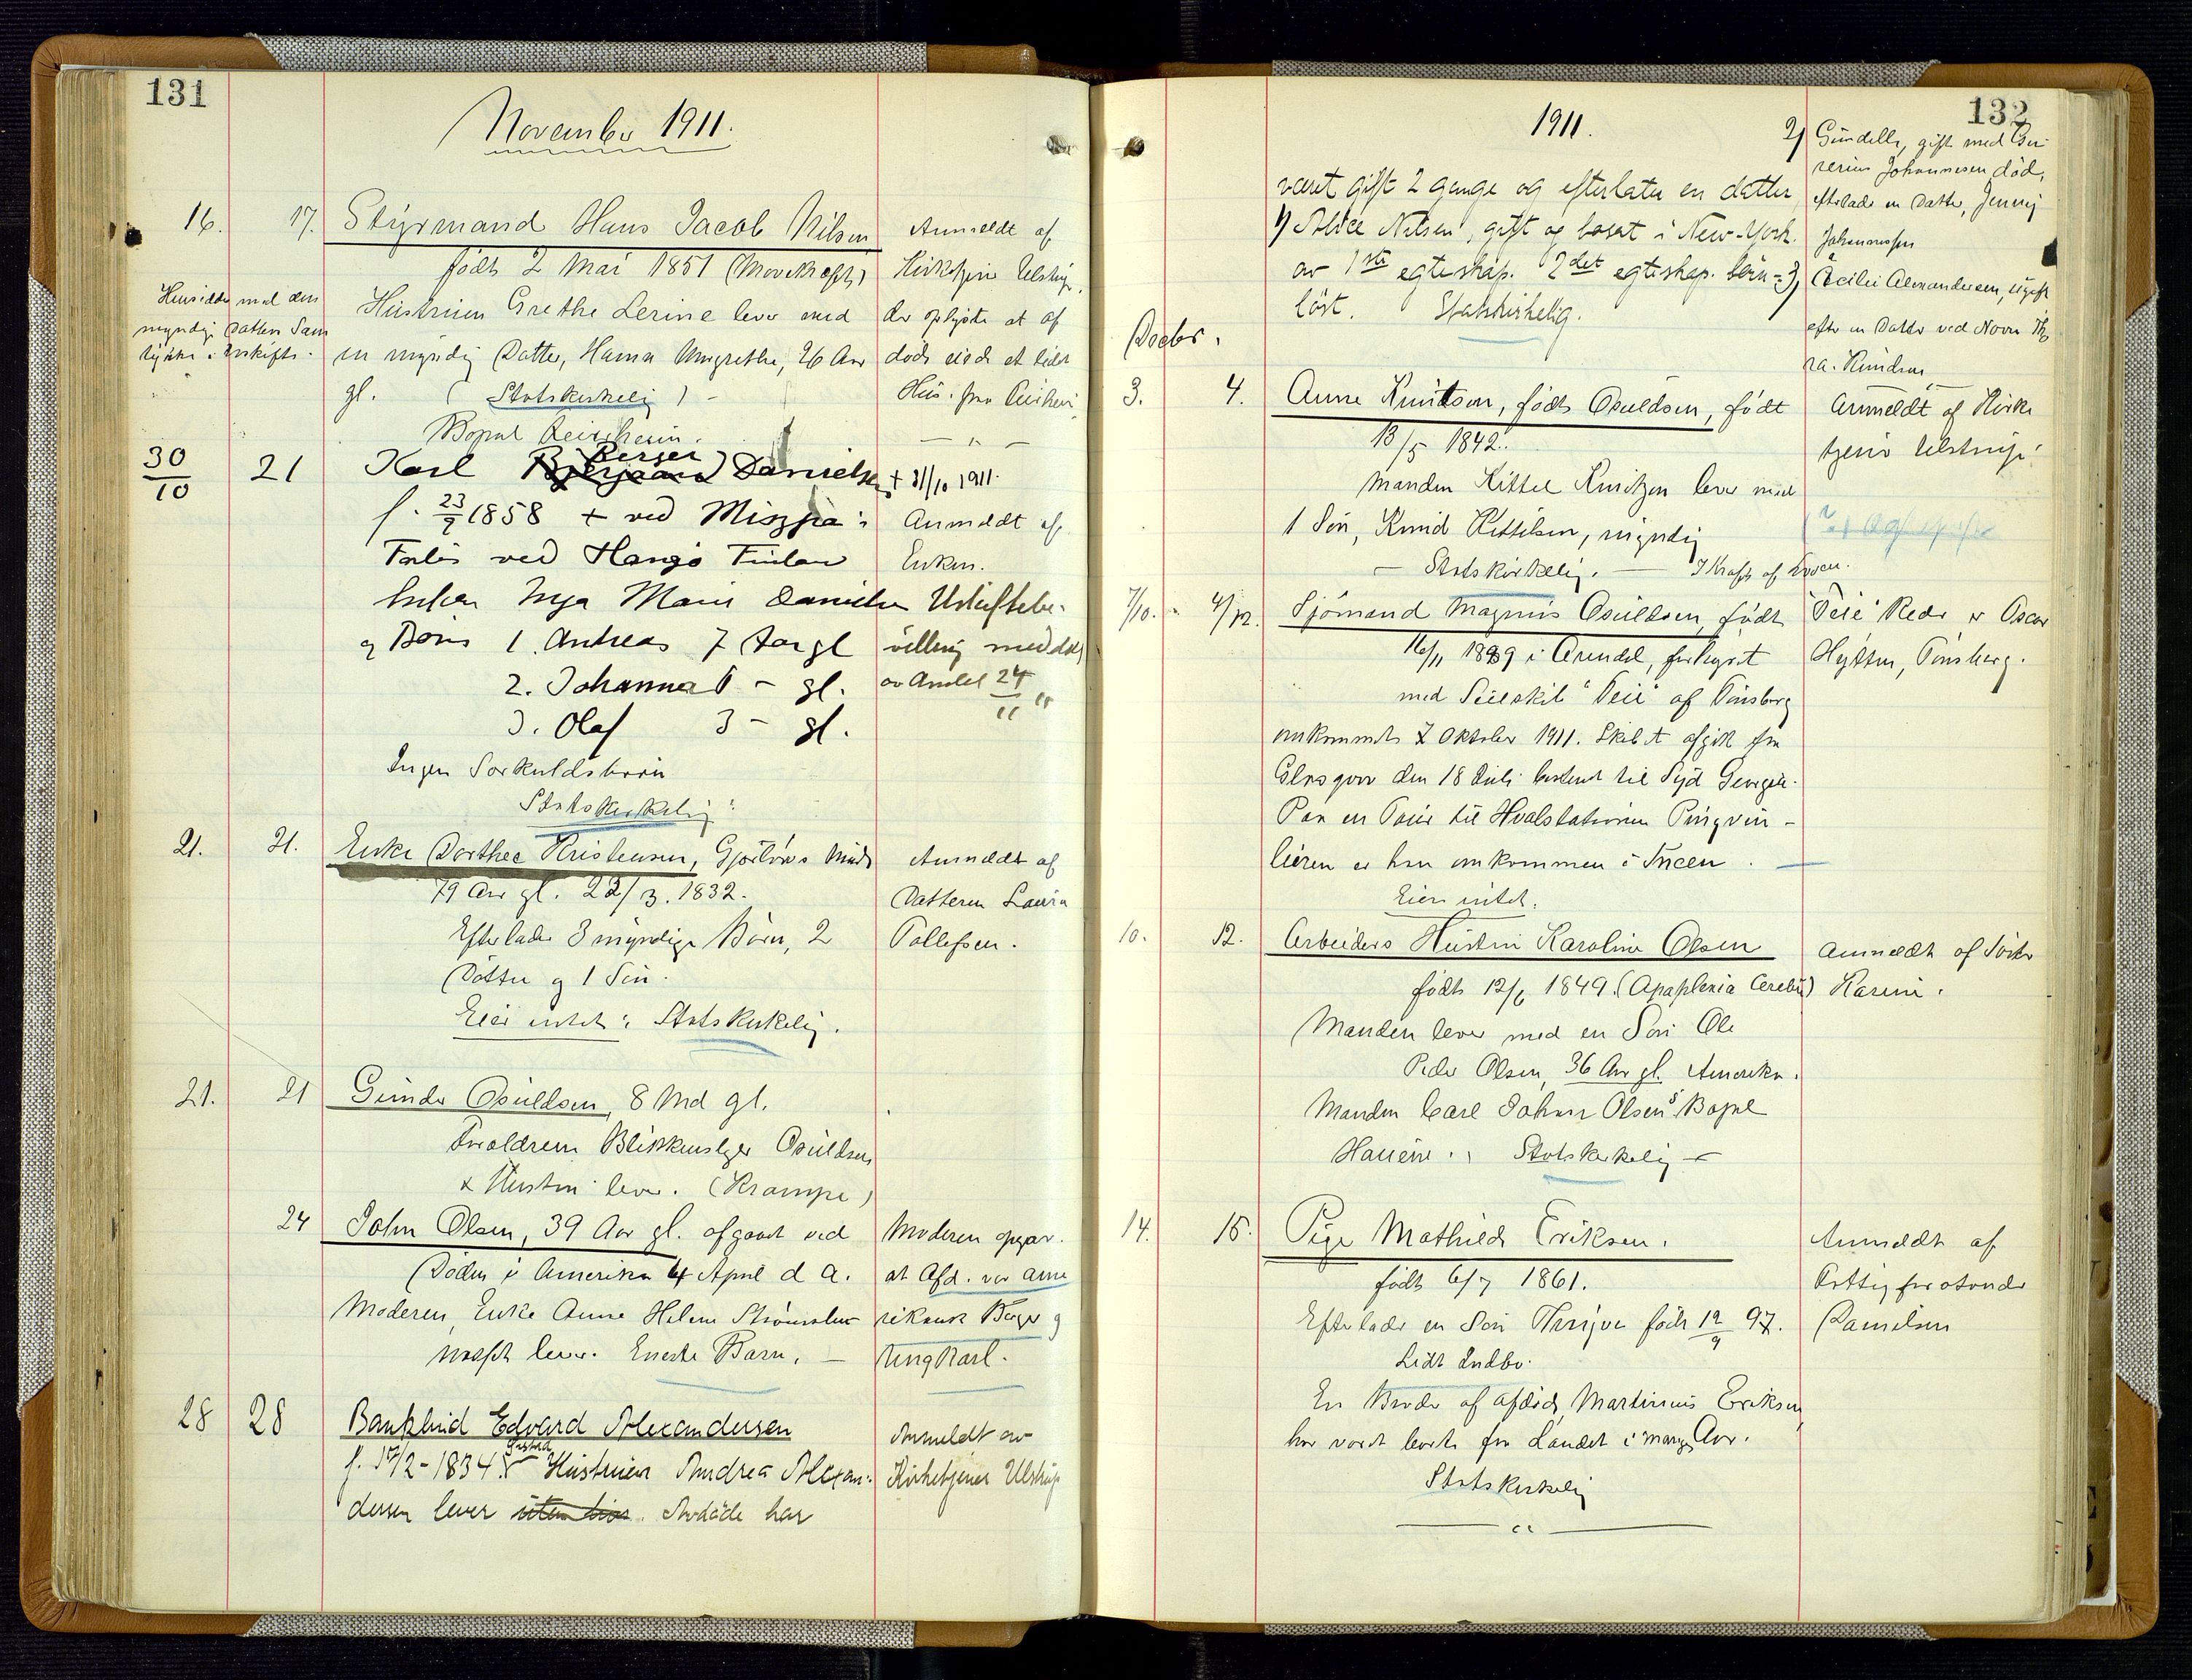 131
November 1911.
16. 17. Styrmand Hans Jacob Nilsen
født 2 Mai 1851
Hustruen Grethe Lerine lever med
en myndig Datter, Hanna Margrethe, 26 Aar
gl. (Statskirkelig) -
Bopæl
Anmeldt af
Kirketjener Ulstrup,
der oplyste at af
døde eiede et lidet
Hus.
Hensidder med den
myndige Datters Sam
tykke i uskifte.
30/10 21 Karl Berger Danielsen
f. 23/9 1858 + ved
Forlis ved Hangø Finland
Enken Inga Marie Danielsen
og Børn 1. Andreas 7 Aar gl
2. Johanna 6 - gl.
3. Olaf 3 - gl.
Ingen Særkuldsbørn
Statskirkelig
+ 31/10 1911.
Anmeldt af
Enken.
Uskiftebe-
villing meddelt
av Amtet 24/11 11
21. 21. Enke Dorthea Kristensen,
79 Aar gl. 22/3. 1832.
Efterlader 3 myndige Børn, 2
Døttre og 1 Søn.
Eier intet. Statskirkelig.
Anmeldt af
Datteren Laura
Tollefsen.
21. 21 Gunder Osuldsen, 8 Md gl.
Forældrene Blikkenslager Osuldsen
& Hustru lever. (Krampe)
24 John Olsen, 39 Aar gl. afgaaet ved
Døden i Amerika 4 April d A.
Moderen, Enke Anne Helene
lever. Eneste Barn. -
Moderen opgav.
at Afd. var ame
rikansk Borger og
Ungkarl.
28 28 Bankbud Edvard Alexandersen
f. 17/2-1834. Hustruen Andrea Alexan-
dersen lever uten bios. Avdøde har
Anmeldt av
Kirketjener Ulstrup
132
1911.
været gift 2 gange og efterlater en datter
1) Alice Nilsen, gift og bosat i New-York.
av 1ste egteskap. 2det egteskap. barn-
løst. Statskirkelig.
2) Gundelle, gift med
Johannesen død,
efterlader en Datter, Jenny
Johannessen
3) Cecilie Alexandersen, ugift
efter en Datter ved Navn
Decbr.
3. 4. Anne Knutson, født Osuldsen, født
13/5 1842.
Manden Kittel Knutzon lever med
1 Søn, Knud Kittilsen, myndig
- Statskirkelig. - I Kraft af Loven.
Anmeldt af Kirke
tjener Ulstrup.
7/10. 4/12. Sjømand Magnus Osuldsen, født
16/11 1889 i Arendal, forhyret
med Seilskib "Teie" af Tønsberg
omkommet 7 Oktober 1911. Skibet afgik fra
Glasgow den 18 Juli bestemt til Syd Georgia.
Paa en Tour til Hvalstationen Pingvin-
leiren er han omkommen i Sneen. -
Eier intet.
"Teie" Reder er Oscar
Hytten, Tønsberg.
10. 12. Arbeiders Hustru Karoline Olsen
født 12/6 1849. (Apaplexia Cerebri)
Manden lever med en Søn Ole
Peder Olsen, 36 Aar gl. Amerika.
Manden Carl Johan Olsens Bopæl
Statskirkelig -
Anmeldt af
Karine.
14. 15. Pige Mathilde Eriksen.
født 6/7 1861.
Efterlader en Søn Trygve født 12/9 97.
Lidt Indbo.
En Broder af afdøde, Martinius Eriksen,
har været borte fra Landet i mange Aar.
Statskirkelig
Anmeldt af
Fattigforstander
Danielsen